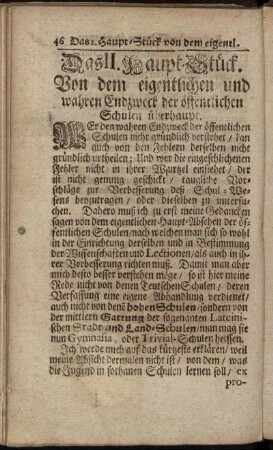 46 Das 2. Haupt-Stück von dem eigentl.
Das II. Haupt-Stück.
Von dem eigentlichen und
wahren Endzweck der öffentlichen
Schulen überhaupt.
WEr den wahren Endzweck der öffentlichen
Schulen nicht gründlich verstehet / kan
auch von den Fehlern derselben nicht
gründlich urtheilen; Und wer die eingeschlichenen
Fehler nicht in ihrer Wurtzel einsehet / der
ist nicht genug geschickt / taugliche Vor-
schläge zur Verbesserung deß Schul-We-
sens beyzutragen / oder dieselben zu untersu-
chen. Dahero muß ich zu erst meine Gedancken
sagen von dem eigentlichen Haupt-Absehen der öf-
fentlichen Schulen / nach welchem man sich so wohl
in der Einrichtung derselben und in Bestimmung
der Wissenschafften und Lectionen / als auch in ih-
rer Verbesserung richten muß. Damit man aber
mich desto besser verstehen möge / so ist hier meine
Rede nicht von denen Teutschen Schulen / deren
Verfassung eine eigene Abhandlung verdienet /
auch nicht von denē hohen Schulen / sondern von
der mittlern Gattung der sogenanten Lateini-
schen Stadt- und Land-Schulen / man mag sie
nun Gymnasia, oder Trivial-Schulen heissen.
Ich werde mich auf das kürtzeste erklären / weil
meine Absicht dermalen nicht ist / von dem / was
die Jugend in sothanen Schulen lernen soll / ex
pro-